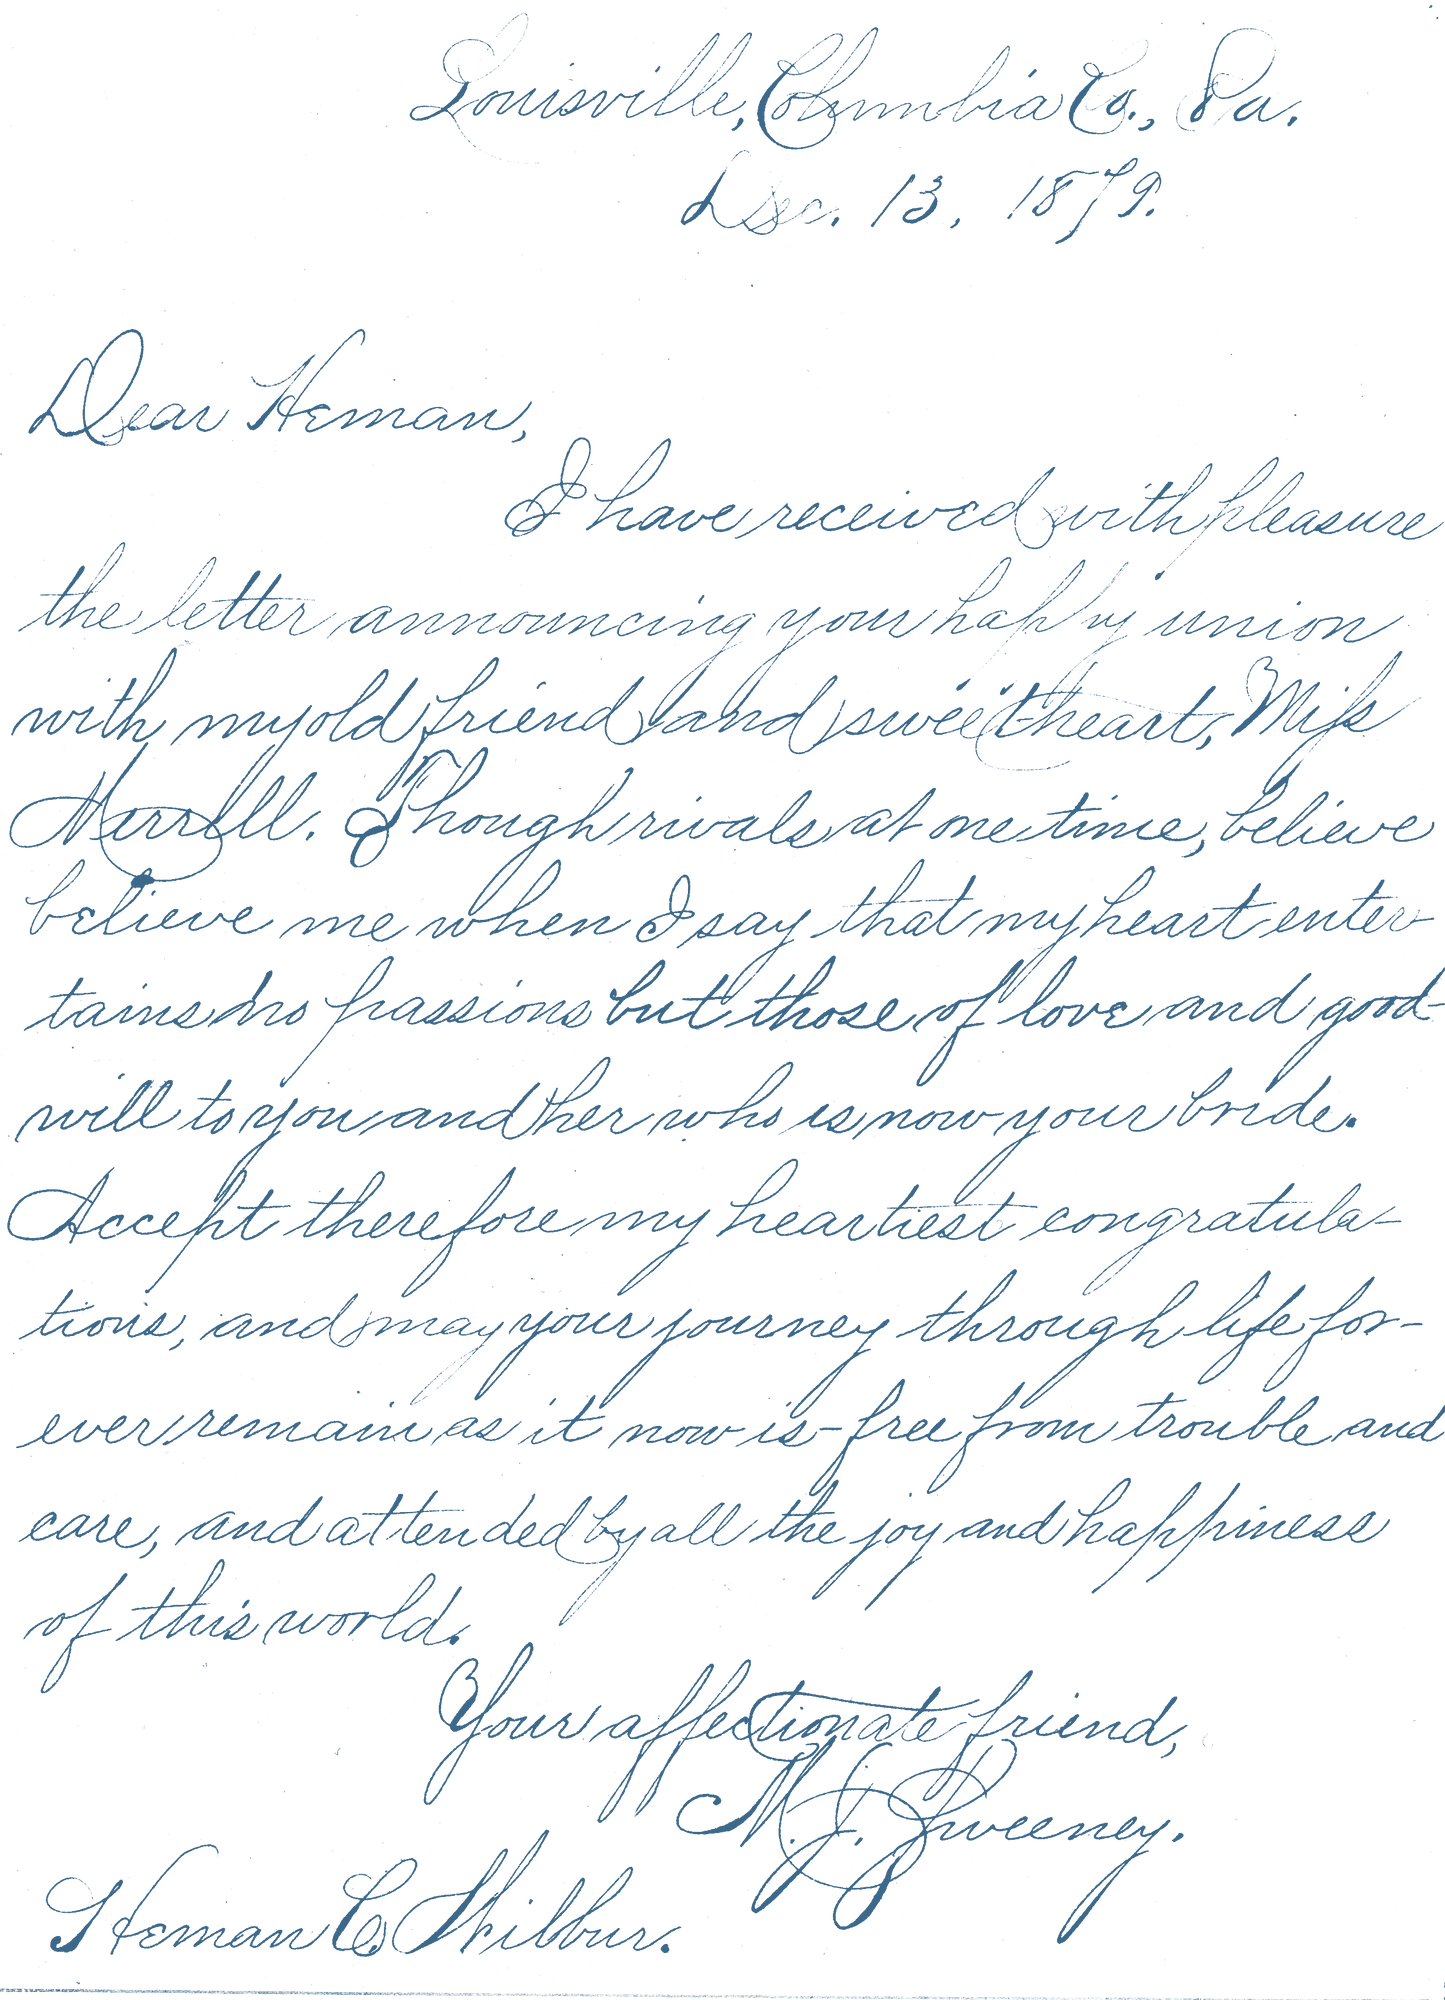 Louisville, Columbia Co., Pa.
Dec. 13, 1879.
Dear Heman,
I have received with pleasure
the letter announcing your happy union
with my old friend and sweetheart, Miss
Merrill. Though rivals at one time, believe
believe me when I say that my heart enter-
tains no passions but those of love and good-
will to you and her who is now your bride.
Accept therefore my heartiest congratula-
tions, and may your journey through life for-
ever remain as it now is - free from trouble and
care, and attended by all the joy and happiness
of this world.
Your affectionate friend,
M. J. Sweeney.
Heman C. Wilbur.